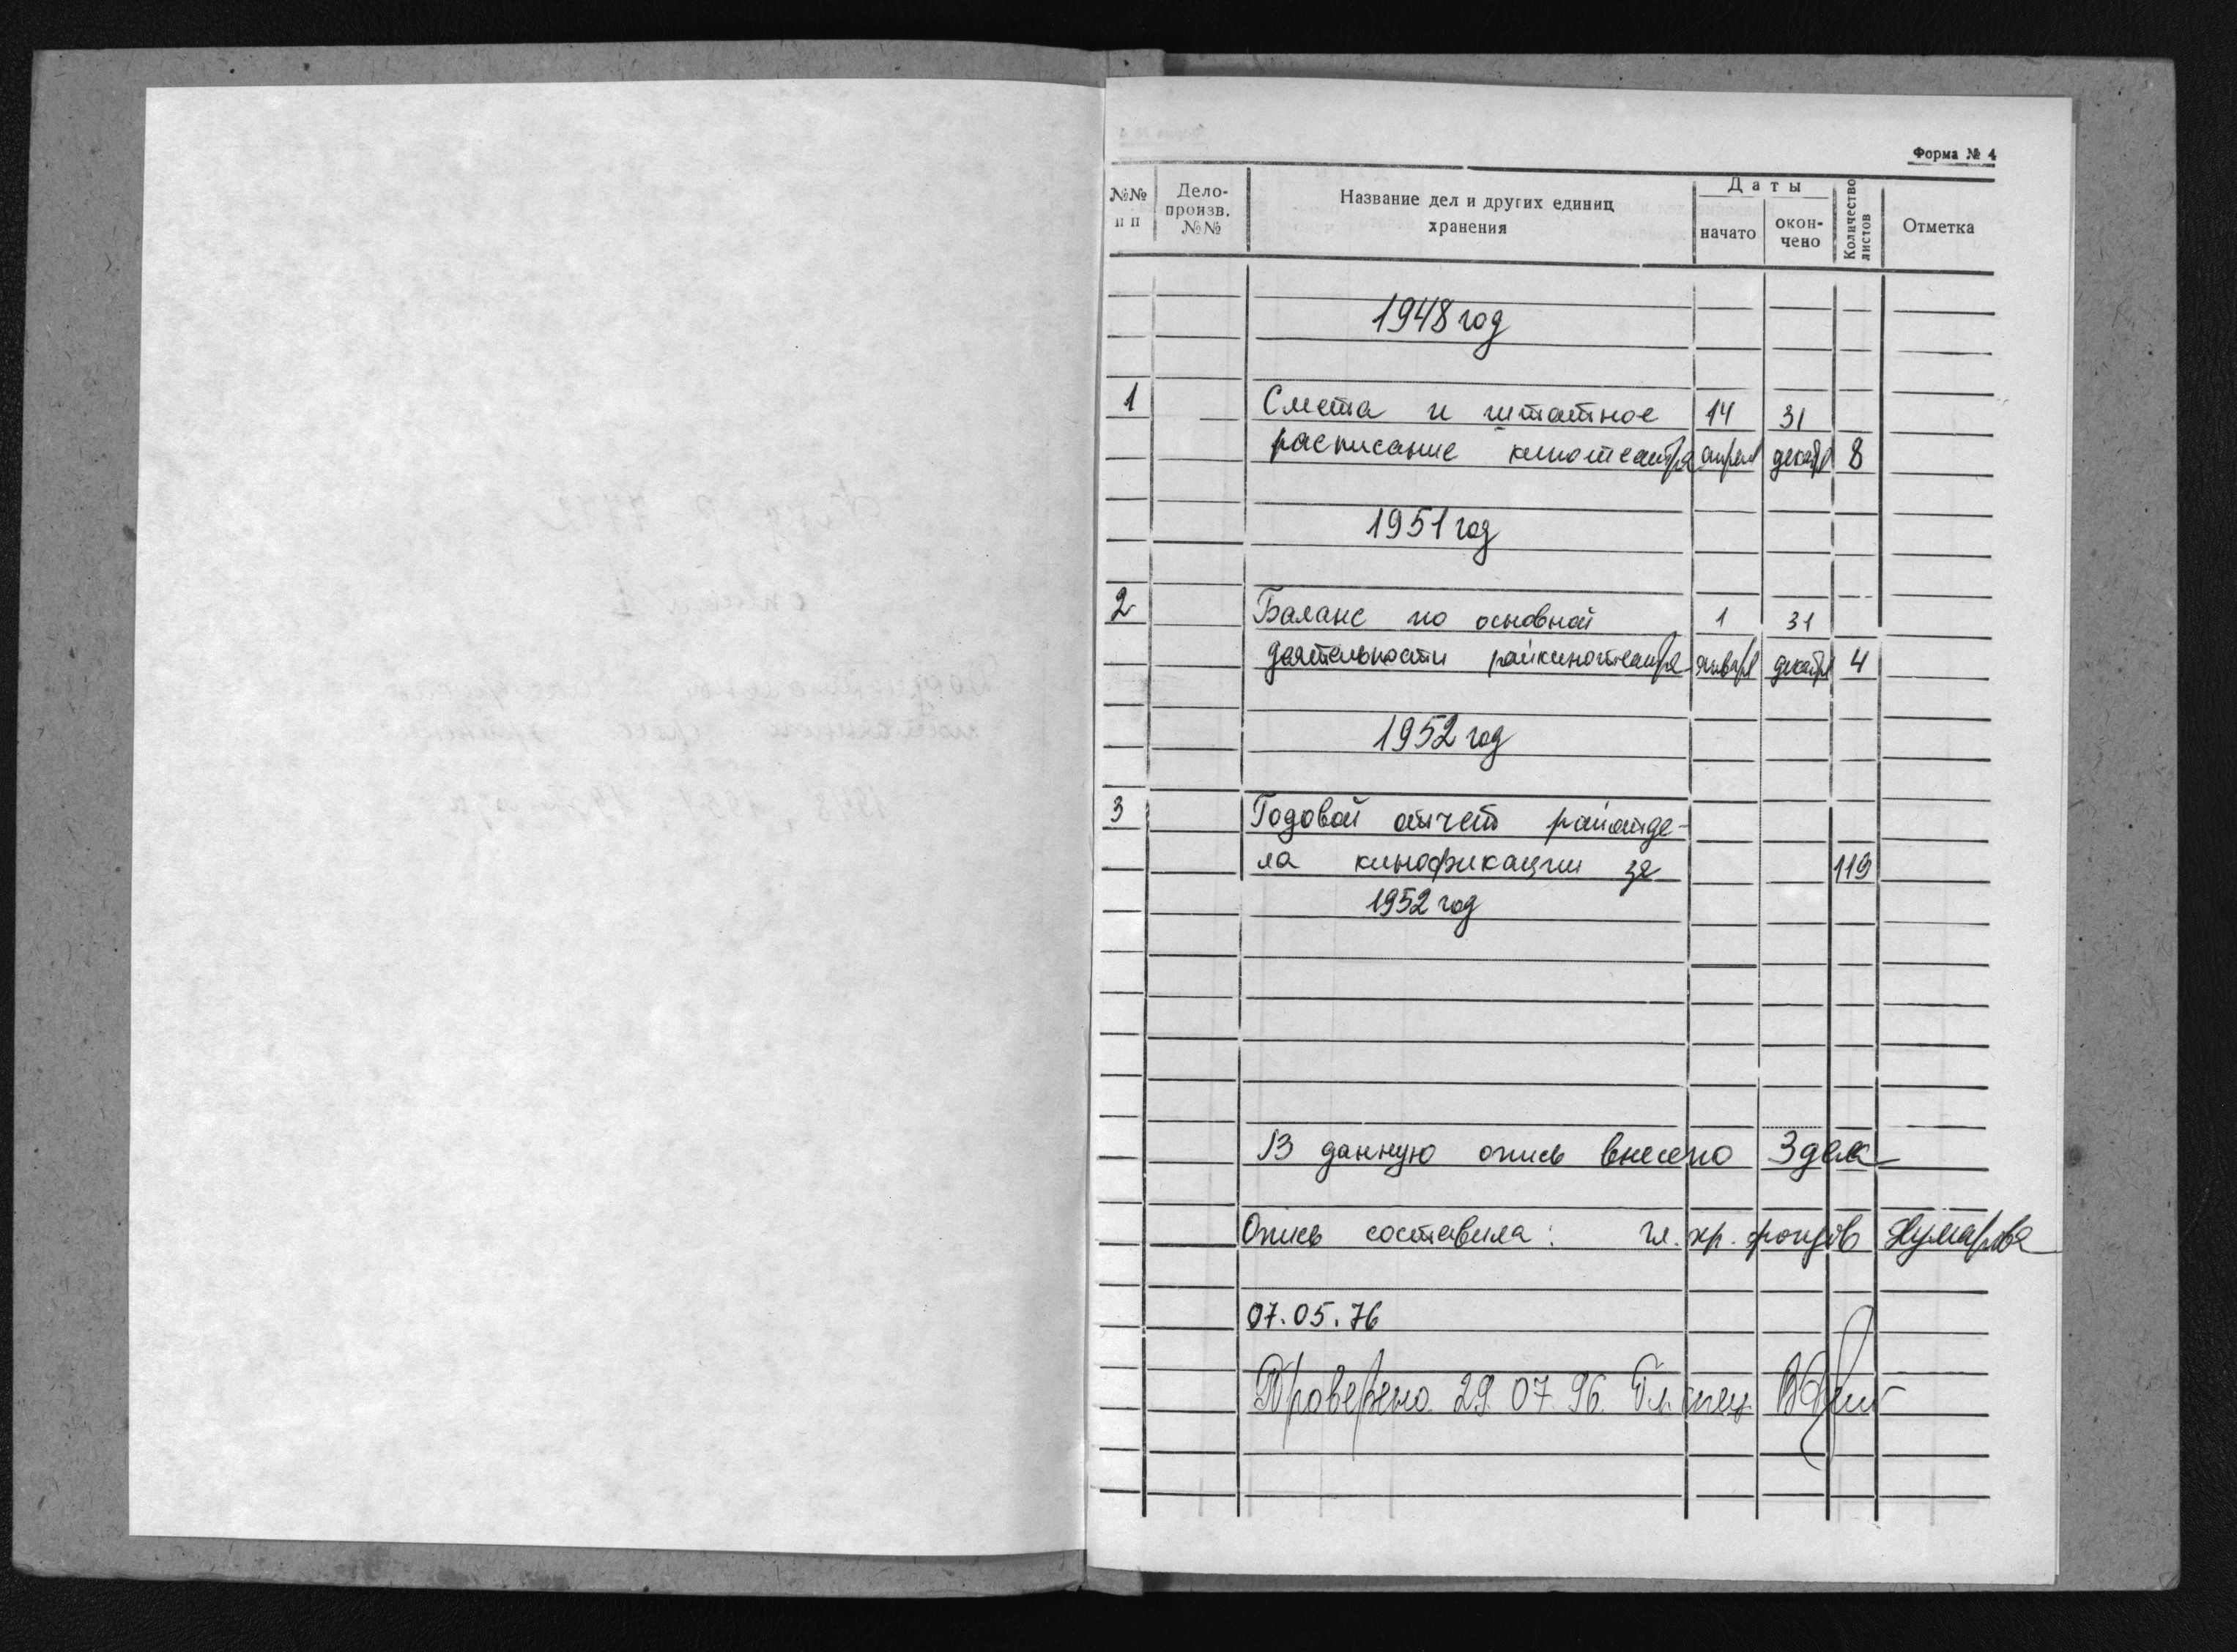 Форма № 4
№№ п п
Дело-произв. №№
Название дел и других единиц хранения
Даты
начато
окон-чено
Количество листов
Отметка
1948 год
1 Смета и штатное 14 31
расписание кинотеатра апреля декабря 8
1951 год
2 Баланс по основной 1 31
деятельности райкинотеатра января декабря 4
1952 год
3 Годовой отчет райотде-
ла кинофикации за 119
1952 год
В данную опись внесено 3 дела
Опись составила: гл. хр. фондов
07.05.76
Проверено 29.07.96. Гл. спец.